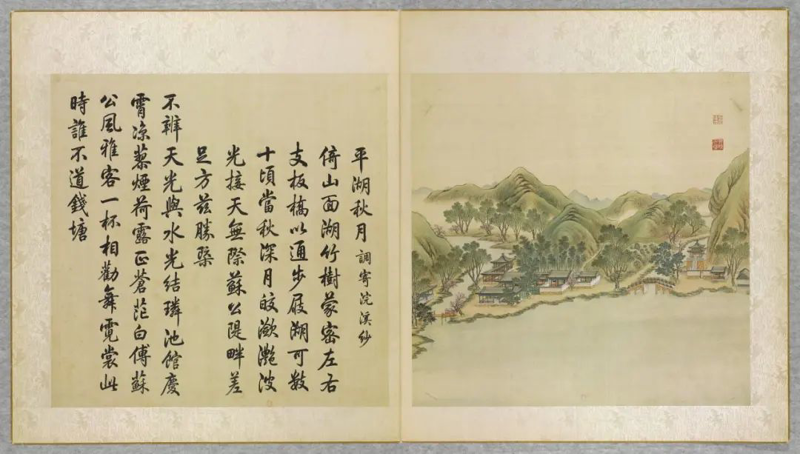 平湖秋月 調寄浣溪紗
倚山面湖竹樹蒙密左右
支板橋以通步屐湖可數
十頃當秋深月皎瀲灔波
光接天無際蘇公隄畔差
足方茲勝槩
不辨天光與水光結璘池館慶
霄凉蓼煙荷露正蒼茫白傅蘇
公風雅客一杯相勸舞霓裳此
時誰不道錢塘